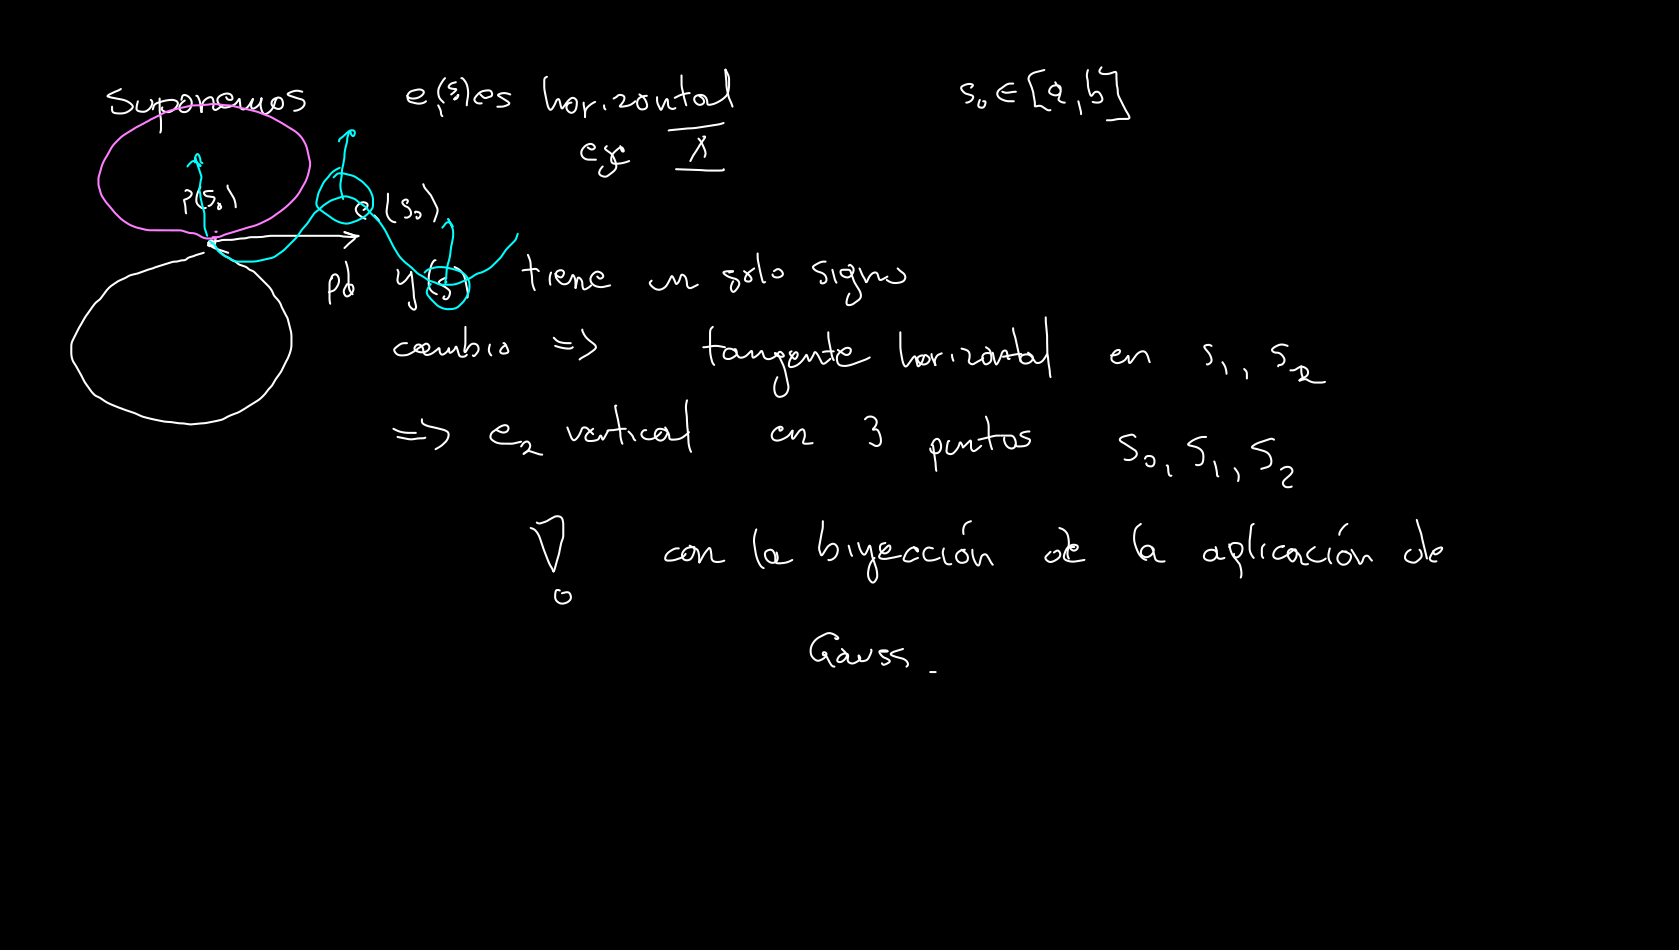 Suponemos e₁(s) es horizontal s₀ ∈ [a, b]
eje X
p(s₀)
e₁(s₀)
pd y(s) tiene un solo signo
cambio => tangente horizontal en s₁, s₂
=> e₂ vertical en 3 puntos s₀, s₁, s₂
con la biyección de la aplicación de
Gauss.